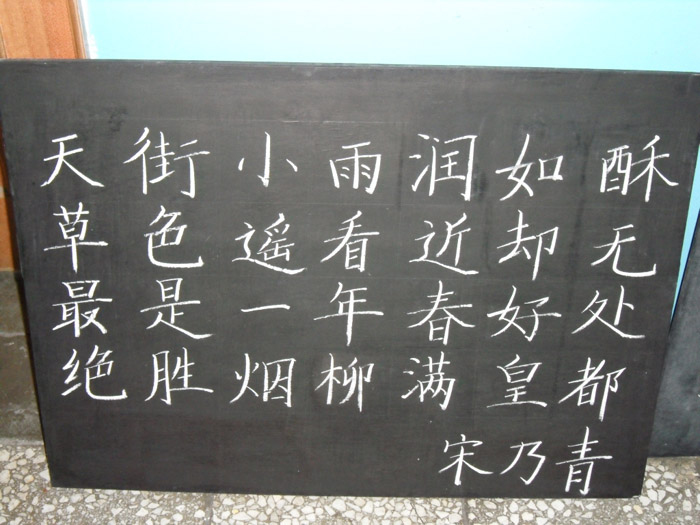 天街小雨润如酥
草色遥看近却无
最是一年春好处
绝胜烟柳满皇都
宋乃青